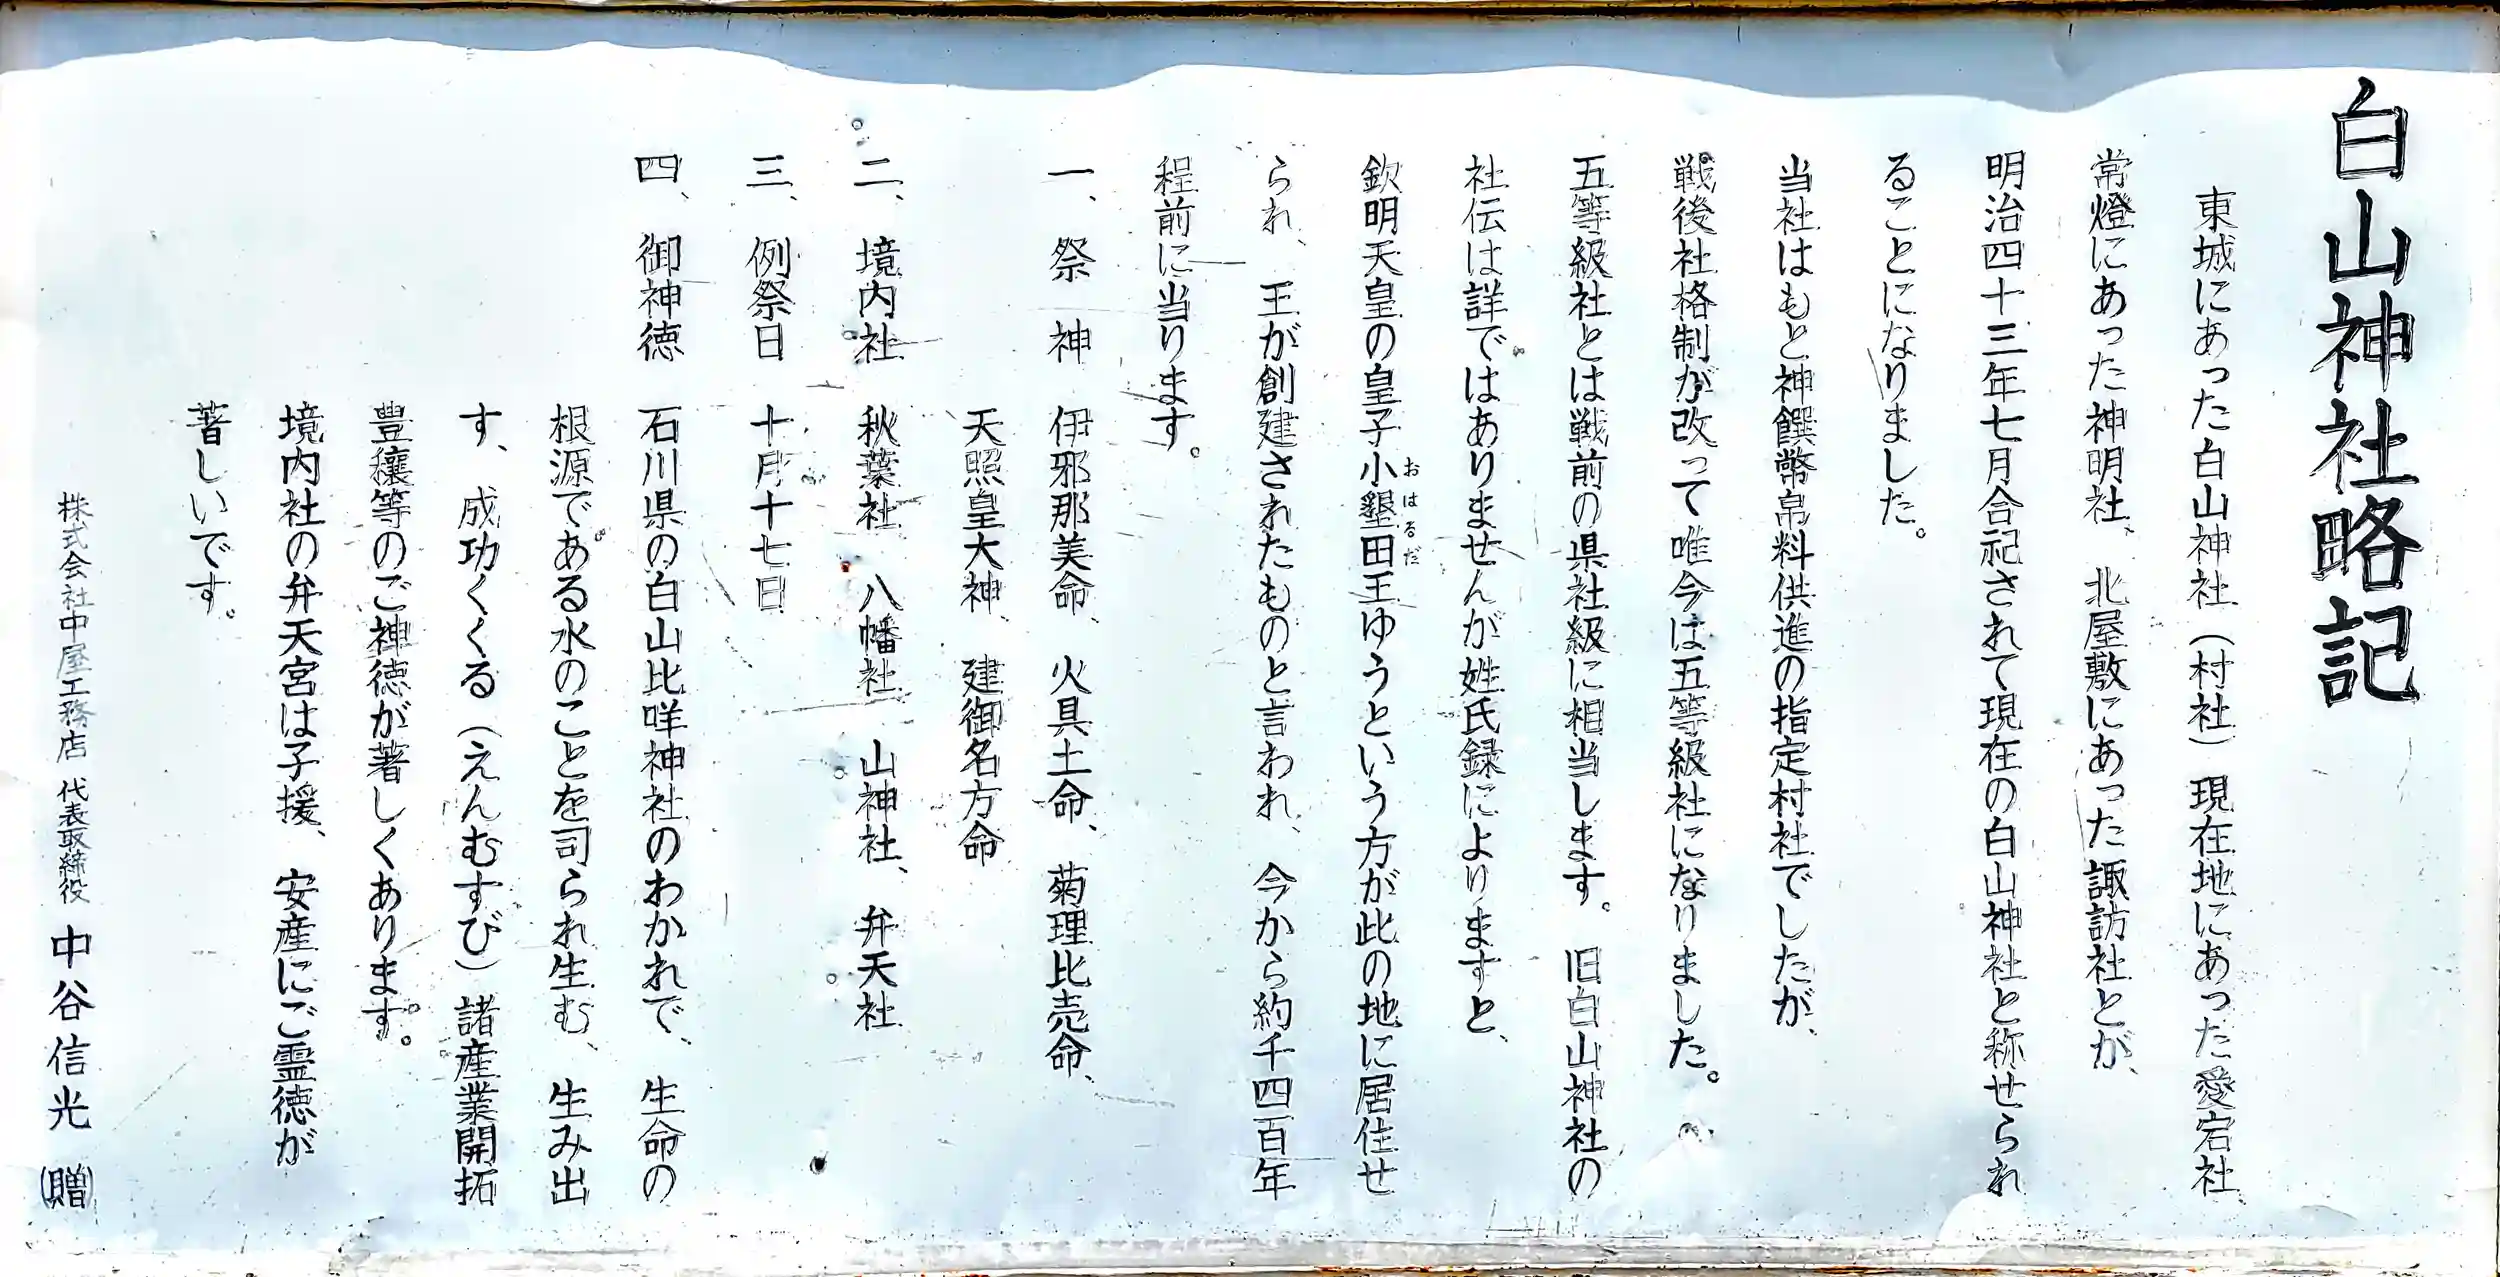 白山神社略記
東城にあった白山神社（村社）現在地にあった愛宕社、
常燈にあった神明社、北屋敷にあった諏訪社とが、
明治四十三年七月合祀されて現在の白山神社と称せられ
ることになりました。
当社はもと神饌幣帛料供進の指定村社でしたが、
戦後社格制が改って唯今は五等級社になりました。
五等級社とは戦前の県社級に相当します。旧白山神社の
社伝は詳ではありませんが姓氏録によりますと、
欽明天皇の皇子小墾田王ゆうという方が此の地に居住せ
おはるだ
られ、王が創建されたものと言われ、今から約千四百年
程前に当ります。
一、祭 神 伊邪那美命、火具土命、菊理比売命、
天照皇大神、建御名方命
二、境内社 秋葉社 八幡社 山神社、弁天社
三、例祭日 十月十七日
四、御神徳 石川県の白山比咩神社のわかれで、生命の
根源である水のことを司られ生む、生み出
す、成功くくる（えんむすび）諸産業開拓
豊穰等のご神徳が著しくあります。
境内社の弁天宮は子援、安産にご霊徳が
著しいです。
株式会社中屋工務店 代表取締役 中谷信光 （贈）